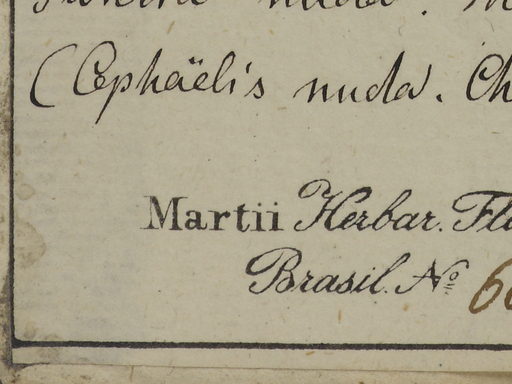 nuda.
(Cephäelis nuda. Ch
Martii Herbar. Fl
Brasil. No. 6